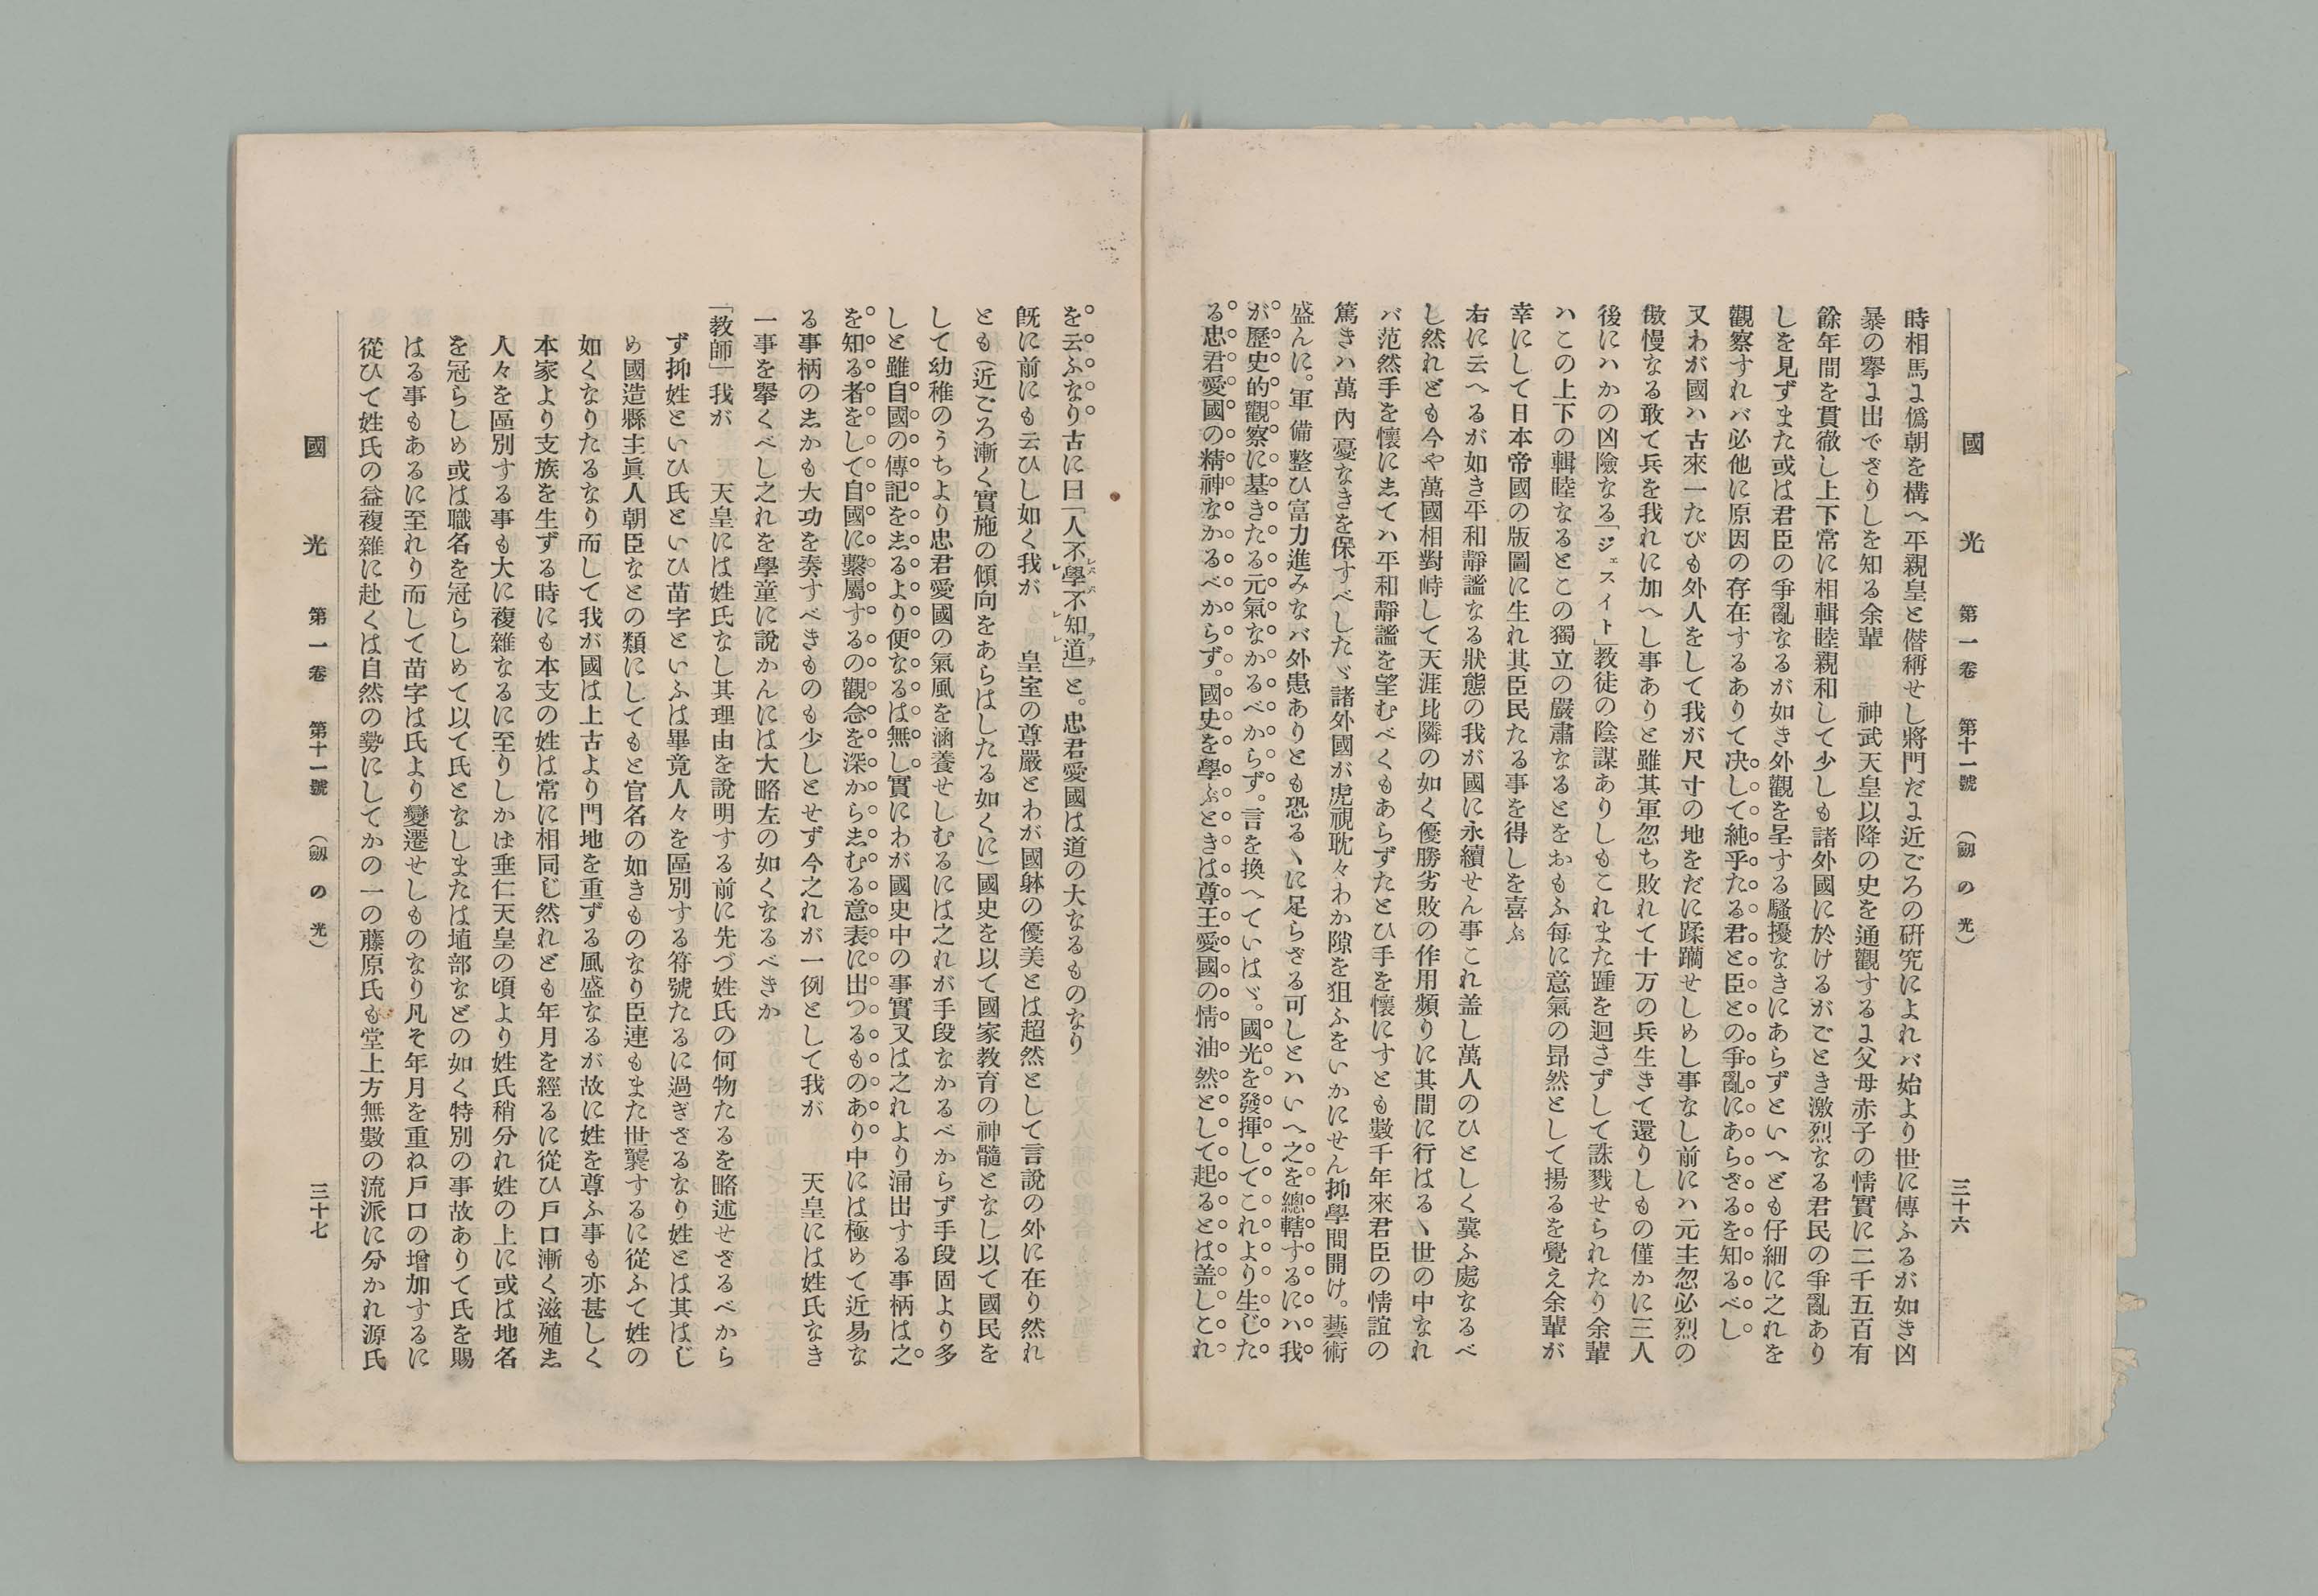 國光　第一卷　第十一號　（劔の光）　三十六
時相馬に僞朝を構へ平親皇と僭稱せし將門だに近ごろの研究によれバ始より世に傳ふるが如き凶
暴の擧に出でざりしを知る余輩　神武天皇以降の史を通觀するに父母赤子の情實に二千五百有
餘年間を貫徹し上下常に相輯睦親和して少しも諸外國に於けるがごとき激烈なる君民の爭亂あり
しを見ずまた或は君臣の爭亂なるが如き外觀を呈する騷擾なきにあらずといへども仔細に之れを
觀察すれバ必他に原因の存在するありて决して純乎たる君と臣との爭亂にあらざるを知るべし
又わが國ハ古來一たびも外人をして我が尺寸の地をだに蹂躪せしめし事なし前にハ元主忽必烈の
傲慢なる敢て兵を我れに加へし事ありと雖其軍忽ち敗れて十万の兵生きて還りしもの僅かに三人
後にハかの凶險なる「ジェスイト」教徒の陰謀ありしもこれまた踵を迴さずして誅戮せられたり余輩
ハこの上下の輯睦なるとこの獨立の嚴肅なるとをおもふ毎に意氣の昻然として揚るを覺え余輩が
幸にして日本帝國の版圖に生れ其臣民たる事を得しを喜ぶ
右に云へるが如き平和靜謐なる狀態の我が國に永續せん事これ盖し萬人のひとしく冀ふ處なるべ
し然れども今や萬國相對峙して天涯比隣の如く優勝劣敗の作用頻りに其間に行はるゝ世の中なれ
バ范然手を懷にしてハ平和靜謐を望むべくもあらずたとひ手を懷にすとも數千年來君臣の情誼の
篤きハ萬內憂なきを保すべしたゞ諸外國が虎視耽々わか隙を狙ふをいかにせん抑學問開け。藝術
盛んに。軍備整ひ富力進みなバ外患ありとも恐るゝに足らざる可しとハいへ之を總轄するにハ我
が歷史的觀察に基きたる元氣なかるべからず。言を換へていはゞ。國光を發揮してこれより生じた
る忠君愛國の精神なかるべからず。國史を學ぶときは尊王愛國の情油然として起るとは盖しこれ
を云ふなり古に曰「人不レバ學不レ知レ道ヲ」と。忠君愛國は道の大なるものなり
旣に前にも云ひし如く我が　皇室の尊嚴とわが國躰の優美とは超然として言說の外に在り然れ
とも（近ごろ漸く實施の傾向をあらはしたる如くに）國史を以て國家教育の神髓となし以て國民を
して幼稚のうちより忠君愛國の氣風を涵養せしむるには之れが手段なかるべからず手段固より多
しと雖自國の傳記をしるより便なるは無し實にわが國史中の事實又は之れより涌出する事柄は之
を知る者をして自國に繫屬するの觀念を深からしむる意表に出つるものあり中には極めて近易な
る事柄のしかも大功を奏すべきものも少しとせず今之れが一例として我が　天皇には姓氏なき
一事を擧くべし之れを學童に說かんには大略左の如くなるべきか
「教師」我が　天皇には姓氏なし其理由を說明する前に先づ姓氏の何物たるを略述せざるべから
ず抑姓といひ氏といひ苗字といふは畢竟人々を區別する符號たるに過ぎざるなり姓とは其はじ
め國造縣主眞人朝臣なとの類にしてもと官名の如きものなり臣連もまた世襲するに從ふて姓の
如くなりたるなり而して我が國は上古より門地を重ずる風盛なるが故に姓を尊ふ事も亦甚しく
本家より支族を生ずる時にも本支の姓は常に相同じ然れども年月を經るに從ひ戶口漸く滋殖し
人々を區別する事も大に複雜なるに至りしかは垂仁天皇の頃より姓氏稍分れ姓の上に或は地名
を冠らしめ或は職名を冠らしめて以て氏となしまたは埴部などの如く特別の事故ありて氏を賜
はる事もあるに至れり而して苗字は氏より變遷せしものなり凡そ年月を重ね戶口の增加するに
從ひて姓氏の益複雜に赴くは自然の勢にしてかの一の藤原氏も堂上方無數の流派に分かれ源氏
國光　第一卷　第十一號　（劔の光）　三十七